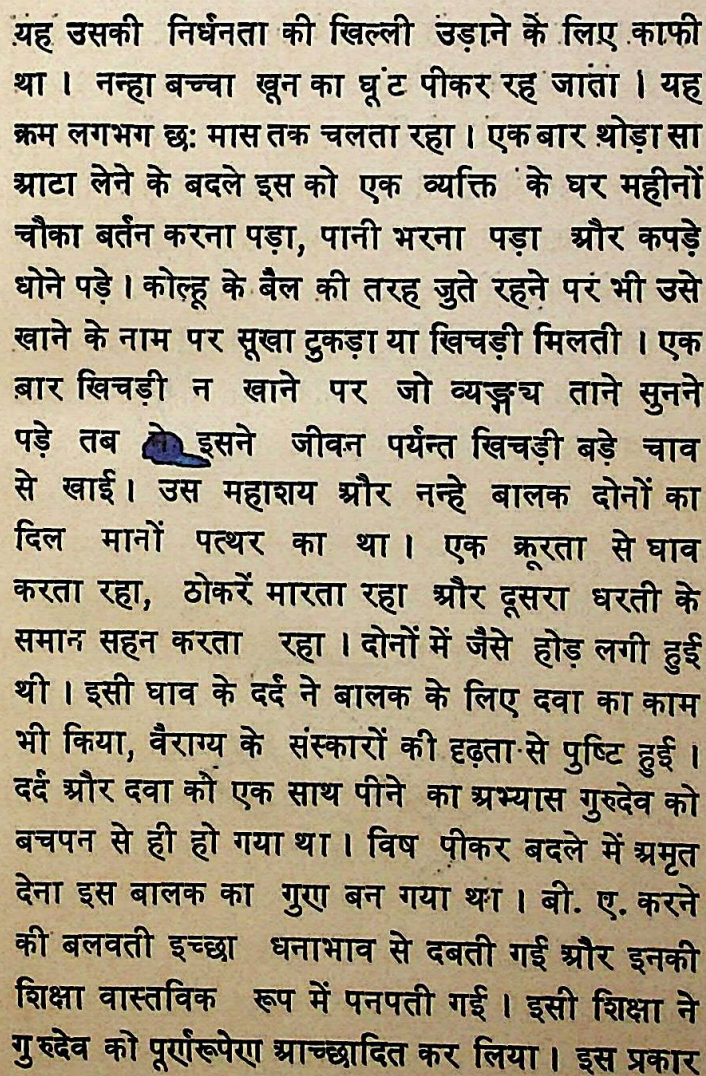 यह उसकी निर्धनता की खिल्ली उड़ाने के लिए काफी
था । नन्हा बच्चा खून का घूंट पीकर रह जाता । यह
क्रम लगभग छः मास तक चलता रहा । एक बार थोड़ा सा
आटा लेने के बदले इस को एक व्यक्ति के घर महीनों
चौका बर्तन करना पड़ा, पानी भरना पड़ा और कपड़े
धोने पड़े । कोल्हू के बैल की तरह जुते रहने पर भी उसे
खाने के नाम पर सूखा टुकड़ा या खिचड़ी मिलती । एक
बार खिचड़ी न खाने पर जो व्यङ्ग्य ताने सुनने
पड़े तब इसने जीवन पर्यन्त खिचड़ी बड़े चाव
से खाई । उस महाशय और नन्हे बालक दोनों का
दिल मानों पत्थर का था । एक क्रूरता से घाव
करता रहा, ठोकरें मारता रहा और दूसरा धरती के
समान सहन करता रहा । दोनों में जैसे होड़ लगी हुई
थी । इसी घाव के दर्द ने बालक के लिए दवा का काम
भी किया, वैराग्य के संस्कारों की दृढ़ता से पुष्टि हुई ।
दर्द और दवा को एक साथ पीने का अभ्यास गुरुदेव को
बचपन से ही हो गया था । विष पीकर बदले में अमृत
देना इस बालक का गुण बन गया था । बी. ए. करने
की बलवती इच्छा धनाभाव से दबती गई और इनकी
शिक्षा वास्तविक रूप में पनपती गई । इसी शिक्षा ने
गुरुदेव को पूर्णरूपेण आच्छादित कर लिया । इस प्रकार